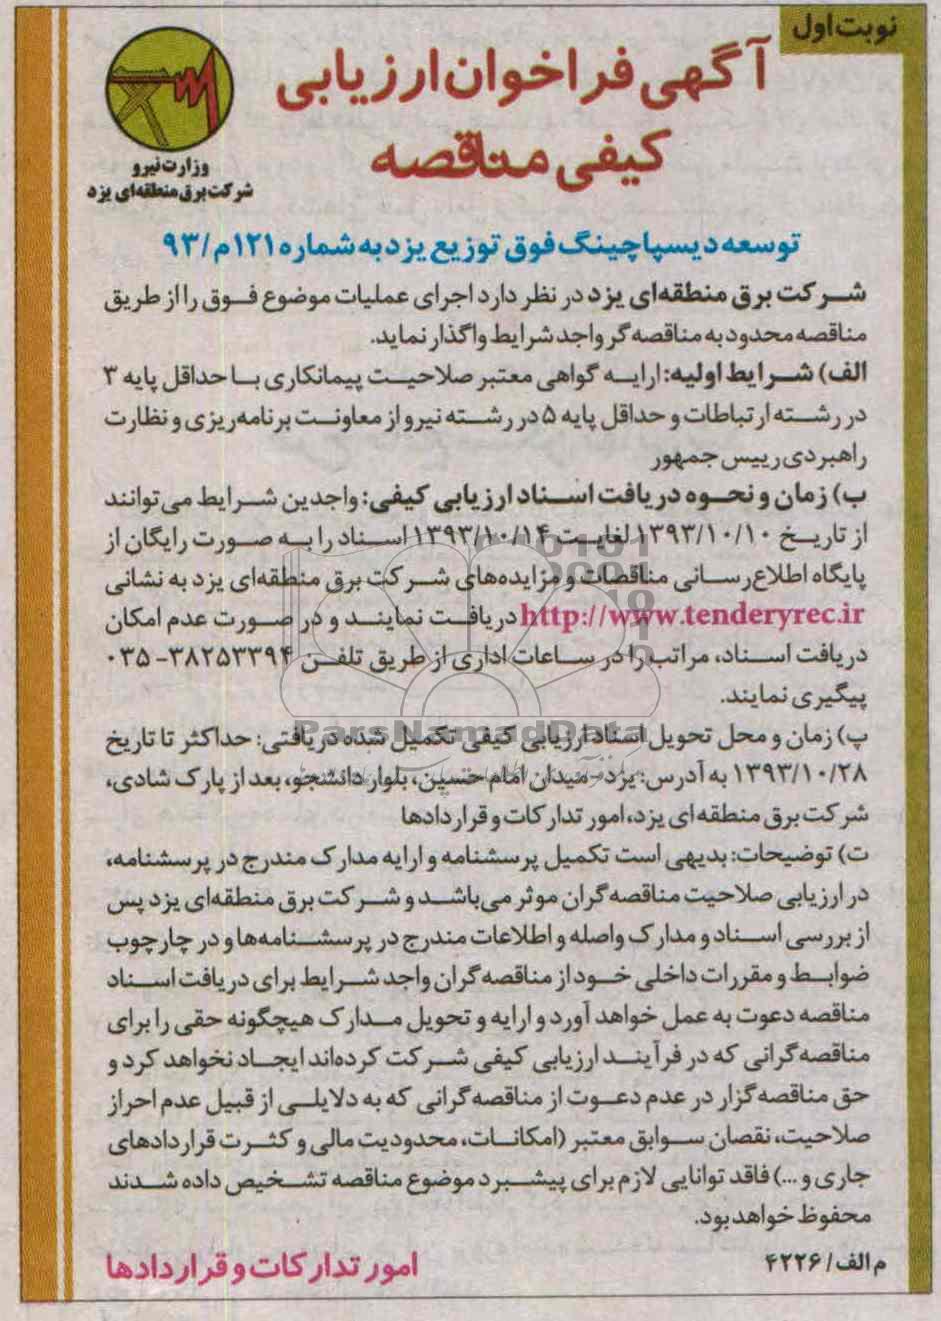 نوبت اول
آگهی فراخوان ارزیابی
کیفی مناقصه
وزارت نیرو
شرکت برق منطقه‌ای یزد
توسعه دیسپاچینگ فوق توزیع یزد به شماره ۱۲۱م/۹۳
شرکت برق منطقه‌ای یزد در نظر دارد اجرای عملیات موضوع فوق را از طریق
مناقصه محدود به مناقصه گر واجد شرایط واگذار نماید.
الف) شرایط اولیه: ارایه گواهی معتبر صلاحیت پیمانکاری با حداقل پایه ۳
در رشته ارتباطات و حداقل پایه ۵ در رشته نیرو از معاونت برنامه‌ریزی و نظارت
راهبردی رییس جمهور
ب) زمان و نحوه دریافت اسناد ارزیابی کیفی: واجدین شرایط می‌توانند
از تاریخ ۱۳۹۳/۱۰/۱۰ لغایت ۱۳۹۳/۱۰/۱۴ اسناد را به صورت رایگان از
پایگاه اطلاع‌رسانی مناقصات و مزایده‌های شرکت برق منطقه‌ای یزد به نشانی
http://www.tenderyrec.ir دریافت نمایند و در صورت عدم امکان
دریافت اسناد، مراتب را در ساعات اداری از طریق تلفن ۳۸۲۵۳۳۹۴-۰۳۵
پیگیری نمایند.
ParsNamadData
پ) زمان و محل تحویل اسناد ارزیابی کیفی تکمیل شده دریافتی: حداکثر تا تاریخ
۱۳۹۳/۱۰/۲۸ به آدرس: یزد- میدان امام حسین، بلوار دانشجو، بعد از پارک شادی،
شرکت برق منطقه ای یزد، امور تدارکات و قراردادها
ت) توضیحات: بدیهی است تکمیل پرسشنامه و ارایه مدارک مندرج در پرسشنامه،
در ارزیابی صلاحیت مناقصه گران موثر می‌باشد و شرکت برق منطقه‌ای یزد پس
از بررسی اسناد و مدارک واصله و اطلاعات مندرج در پرسشنامه‌ها و در چارچوب
ضوابط و مقررات داخلی خود از مناقصه گران واجد شرایط برای دریافت اسناد
مناقصه دعوت به عمل خواهد آورد و ارایه و تحویل مدارک هیچگونه حقی را برای
مناقصه گرانی که در فرآیند ارزیابی کیفی شرکت کرده‌اند ایجاد نخواهد کرد و
حق مناقصه گزار در عدم دعوت از مناقصه گرانی که به دلایلی از قبیل عدم احراز
صلاحیت، نقصان سوابق معتبر (امکانات، محدودیت مالی و کثرت قراردادهای
جاری و ...) فاقد توانایی لازم برای پیشبرد موضوع مناقصه تشخیص داده شدند
محفوظ خواهد بود.
م الف/ ۴۲۲۶
امور تدارکات و قراردادها